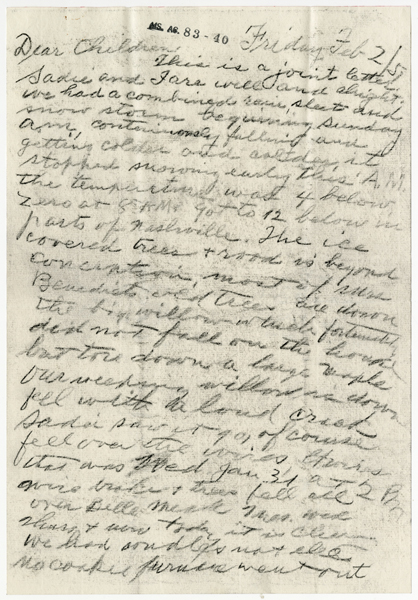 MS. AC. 83-40
Friday Feb 2/51
Dear Children
This is a joint letter
Sadie and I are well and alright.
we had a combined rain, sleet and
snow storm beginning Sunday
A.M., continuously falling and
getting colder and colder, it
stopped snowing early this A.M.
the temperture was 4 below
zero at 8 AM. got to 12 below in
parts of Nashville. The ice
covered trees + road is beyond
conception, most of
Benedicts old trees are down
the big willow which fortunately
did not fall on the house
but tore down a large maple
Our weeping willow is down
fell with a loud crash
Sadie saw it go, of course
fell over the wires
that was Wed Jan 31 at 2 P.M.
wires broke + trees fell all
over Belle Meade Wed
Thurs + now today it is clear.
we had no lights no elec
no cooking furnace went out